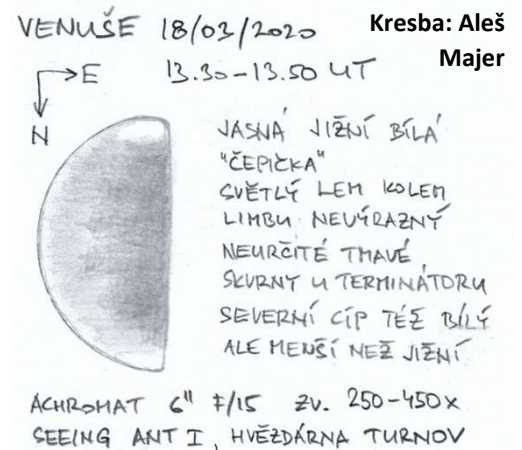 VENUŠE 18/03/2020
Kresba: Aleš
Majer
E
13.30-13.50 UT
N
JASNÁ JIŽNÍ BÍLÁ
"ČEPIČKA"
SVĚTLÝ LEM KOLEM
LIMBU NEVÝRAZNÝ
NEURČITÉ TMAVÉ
SKVRNY U TERMINÁTORU
SEVERNÍ CÍP TÉŽ BÍLÝ
ALE MENŠÍ NEŽ JIŽNÍ
ACHROMAT 6" F/15 ZV. 250-450x
SEEING ANT I, HVĚZDÁRNA TURNOV